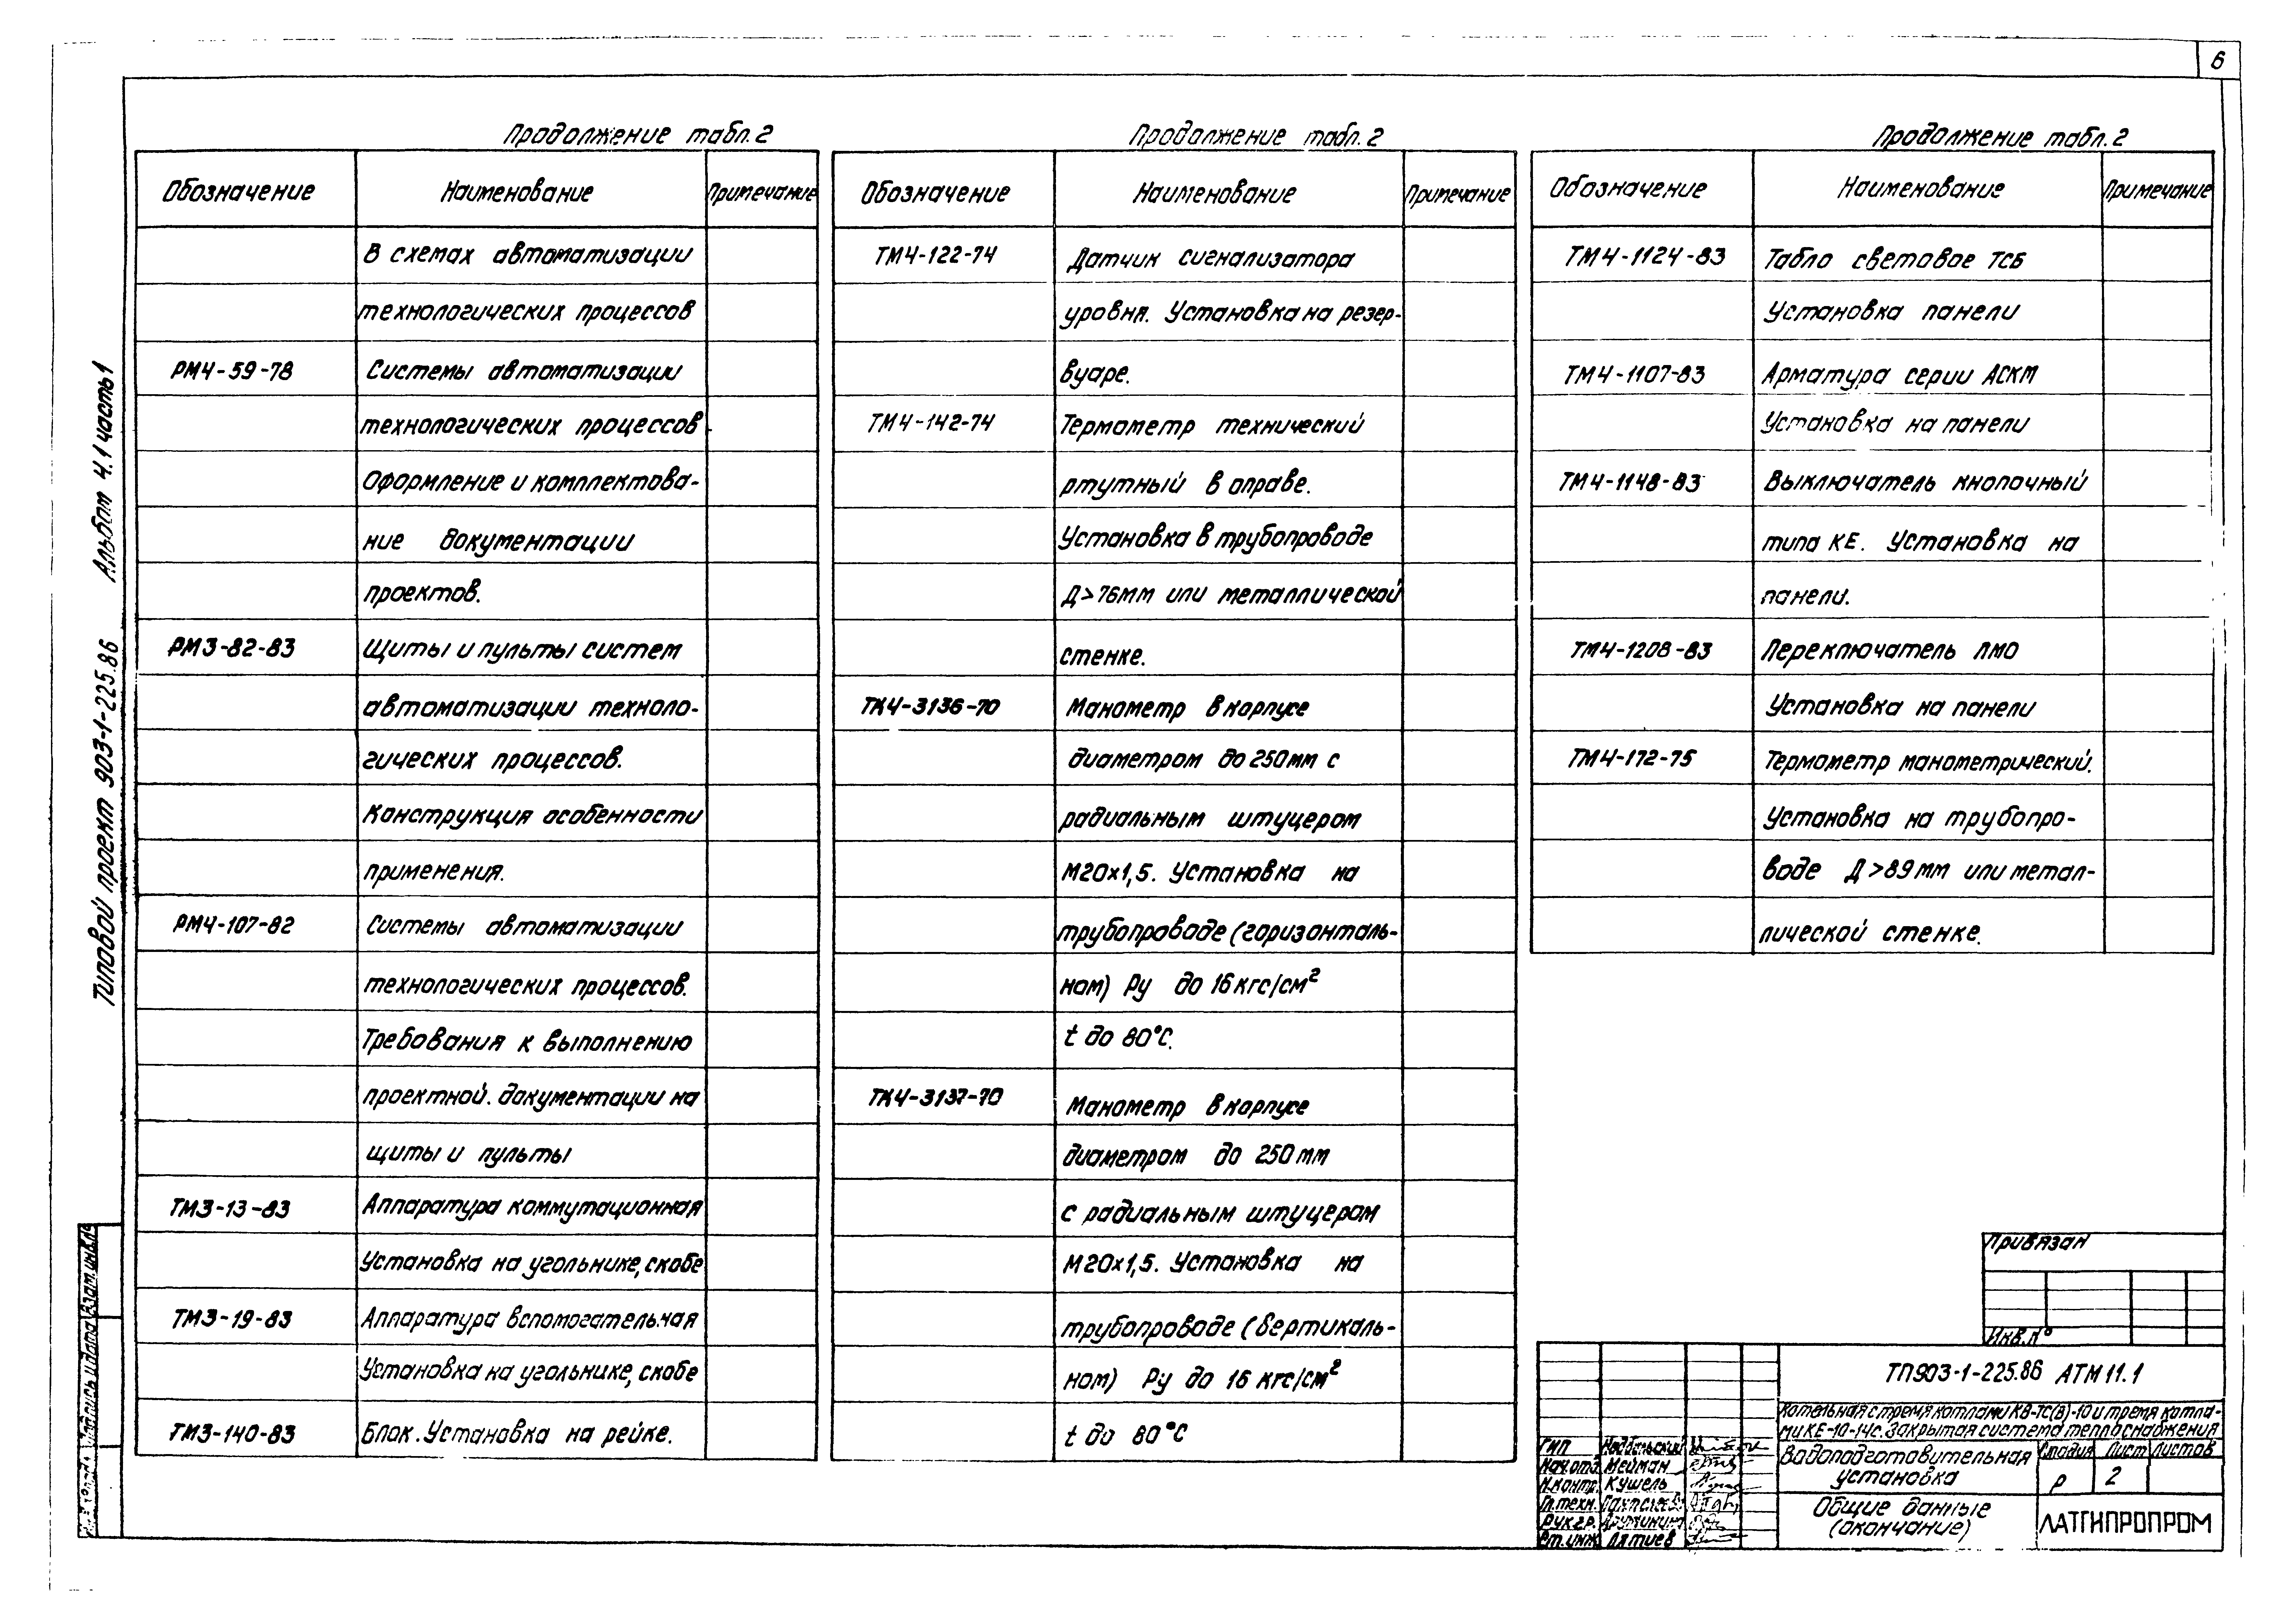 6
Типовой проект 903-1-225.86 Альбом 4.1 часть 1
Продолжение табл. 2
Обозначение Наименование Примечание
В схемах автоматизации
технологических процессов
РМ4-59-78 Системы автоматизации
технологических процессов
Оформление и комплектова-
ние документации
проектов.
РМ3-82-83 Щиты и пульты систем
автоматизации техноло-
гических процессов.
Конструкция особенности
применения.
РМ4-107-82 Системы автоматизации
технологических процессов.
Требования к выполнению
проектной. документации на
щиты и пульты
ТМ3-13-83 Аппаратура коммутационная
Установка на угольнике, скобе
ТМ3-19-83 Аппаратура вспомогательная
Установка на угольнике, скобе
ТМ3-140-83 Блок. Установка на рейке.
Продолжение табл. 2
Обозначение Наименование Примечание
ТМ4-122-74 Датчик сигнализатора
уровня. Установка на резер-
вуаре.
ТМ4-142-74 Термометр технический
ртутный в оправе.
Установка в трубопроводе
Д>76мм или металлической
стенке.
ТК4-3136-70 Манометр в корпусе
диаметром до 250мм с
радиальным штуцером
М20х1,5. Установка на
трубопроводе (горизонталь-
ном) Ру до 16 кгс/см²
t до 80°С.
ТК4-3137-70 Манометр в корпусе
диаметром до 250мм
с радиальным штуцером
М20х1,5. Установка на
трубопроводе (вертикаль-
ном) Ру до 16 кгс/см²
t до 80°С
Продолжение табл. 2
Обозначение Наименование Примечание
ТМ4-1124-83 Табло световое ТСБ
Установка панели
ТМ4-1107-83 Арматура серии АСКМ
Установка на панели
ТМ4-1148-83 Выключатель кнопочный
типа КЕ. Установка на
панели.
ТМ4-1208-83 Переключатель ПМО
Установка на панели
ТМ4-172-75 Термометр манометрический.
Установка на трубопро-
воде Д>89мм или метал-
лической стенке.
Привязан
Инв.№
ТП903-1-225.86 АТМ 11.1
Котельная с тремя котлами КВ-ТС(В)-10 и тремя котла-
ми КЕ-10-14с. Закрытая система теплоснабжения
Водоподготовительная
установка
Стадия Лист Листов
Р 2
Общие данные
(окончание)
ЛАТГИПРОПРОМ
ГИП
Нач.отд. Мейман
Н.контр. Кушель
Гл.техн.
Рук.гр.
Ст.инж. Лятиев
Подпись и дата Взам.инв.№